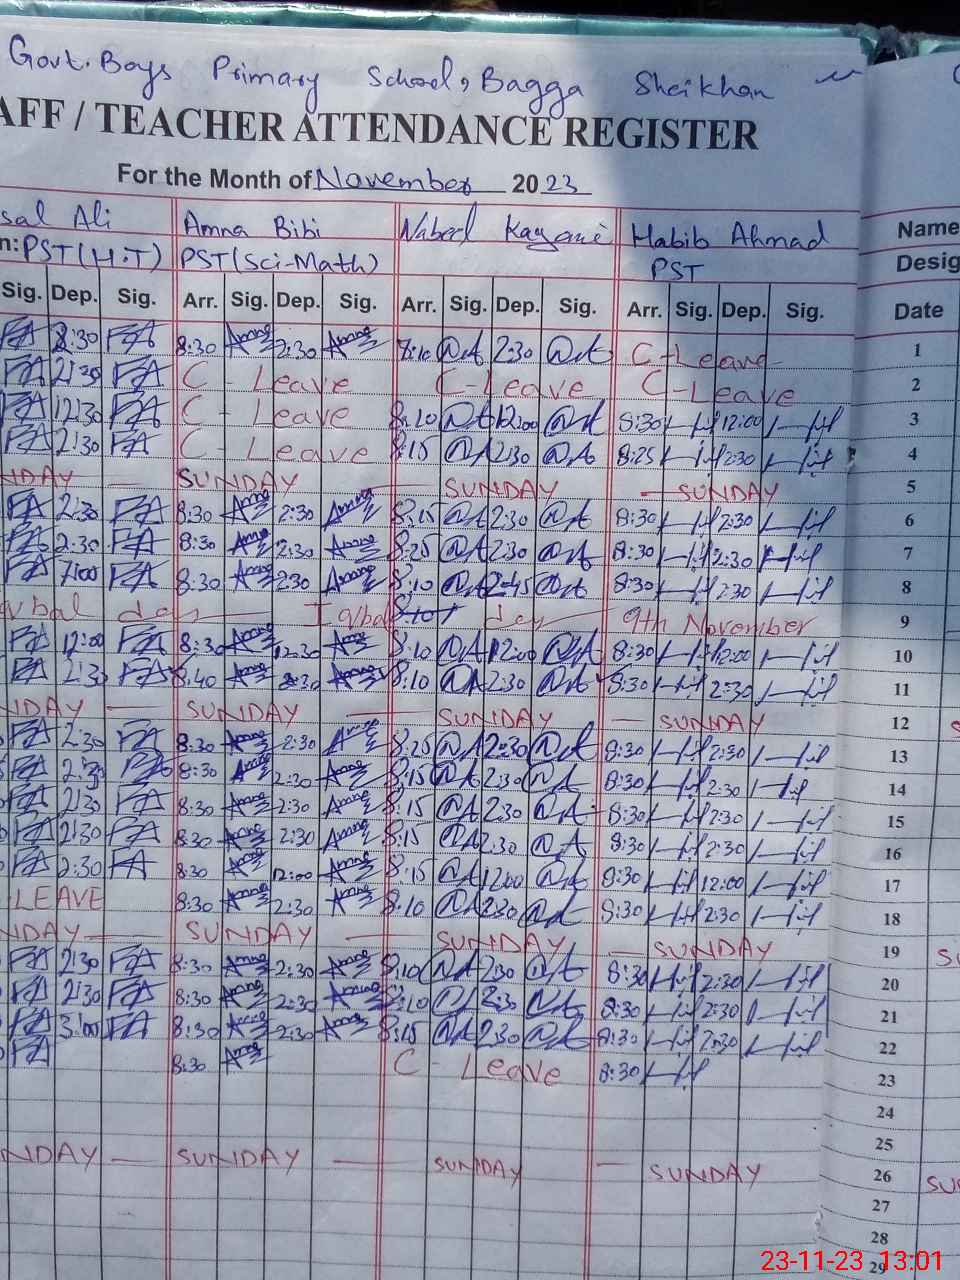 Govt. Boys Primary School, Bagga Sheikhan
AFF / TEACHER ATTENDANCE REGISTER
For the Month of November 2023
sal Ali Amna Bibi Nabeel Kayani Habib Ahmad Name
n: PST(H.T) PST(Sci-Math) PST Desig
Sig. Dep. Sig. Arr. Sig. Dep. Sig. Arr. Sig. Dep. Sig. Arr. Sig. Dep. Sig. Date
FA 2:30 FA 8:30 Amna 2:30 Amna 8:10 2:30 C-Leave 1
FA 2:30 FA C - Leave C-Leave C-Leave 2
FA 12:30 FA C - Leave 8:20 12:00 8:30 12:00 3
FA 2:30 FA C - Leave 8:15 2:30 8:25 2:30 4
NDAY — SUNDAY — SUNDAY — SUNDAY 5
FA 2:30 FA 8:30 Amna 2:30 Amna 8:15 2:30 8:30 2:30 6
FA 2:30 FA 8:30 Amna 2:30 Amna 8:25 2:30 8:30 2:30 7
FA 7:00 FA 8:30 Amna 2:30 Amna 8:10 2:45 8:30 2:30 8
qbal day — Iqbal day — 9th November 9
FA 12:00 FA 8:30 Amna 12:30 Amna 8:10 12:00 8:30 12:00 10
FA 2:30 FA 8:40 Amna 2:30 Amna 8:10 2:30 8:30 2:30 11
NDAY — SUNDAY — SUNDAY — SUNDAY 12
FA 2:30 FA 8:30 Amna 2:30 Amna 8:25 2:30 8:30 2:30 13
FA 2:30 FA 8:30 Amna 2:30 Amna 8:15 2:30 8:30 2:30 14
FA 2:30 FA 8:30 Amna 2:30 Amna 8:15 2:30 8:30 2:30 15
FA 2:30 FA 8:30 Amna 2:30 Amna 8:15 2:30 8:30 2:30 16
FA 2:30 FA 8:30 Amna 12:00 Amna 8:15 12:00 8:30 12:00 17
LEAVE 8:30 Amna 2:30 Amna 8:10 2:30 8:30 2:30 18
NDAY — SUNDAY — SUNDAY — SUNDAY 19
FA 2:30 FA 8:30 Amna 2:30 Amna 8:10 2:30 8:30 2:30 20
FA 2:30 FA 8:30 Amna 2:30 Amna 8:10 2:30 8:30 2:30 21
FA 3:00 FA 8:30 Amna 2:30 Amna 8:15 2:30 8:30 2:30 22
FA 8:30 Amna C - Leave 8:30 23
24
25
NDAY — SUNDAY — SUNDAY — SUNDAY 26
27
28
29
23-11-23 13:01